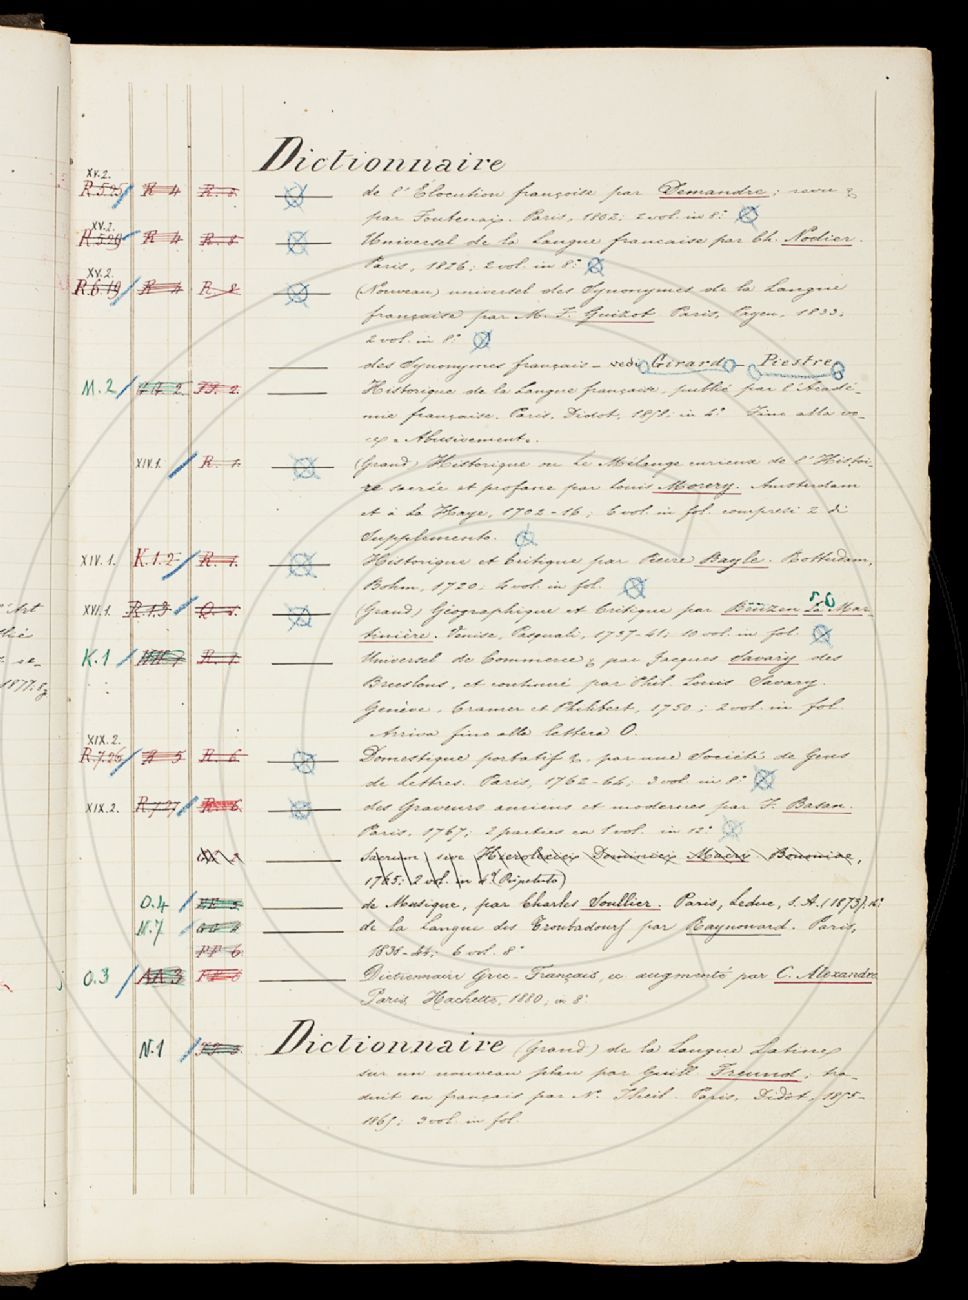 Dictionnaire
XV.2.
R.5.25 R 4 R. 8. de l'Elocution françoise par Demandre; revu &
par Fontenai. Paris, 1802; 2 vol. in 8.°
XV.2.
R 4 R. 8. Universel de la Langue francaise par Ch. Nodier.
Paris, 1826; 2 vol. in 8.°
XV.2.
R.6.19 R 4 R. 8 (Nouveau) universel des Synonymes de la Langue
française par M. F. Guizot Paris, Payen, 1833,
2 vol. in 8.°
des Synonymes français - vedi Girard - Piestre
M.2 Historique de la Langue française, publié par l'Acadé-
mie française. Paris, Didot, in 4.° Fino alla vo-
ce "Abusivement".
XIV.1. R. 1. (Grand) Historique ou Le Mélange curieux de l'Histoi-
re sacrée et profane par Louis Morery. Amsterdam
et à La Haye, 1702-16; 6 vol. in fol. compresi 2 di
Supplemento.
XIV.1. K.1.2 R. 1. Historique et Critique par Pierre Bayle. Rotterdam,
Bohm, 1720; 4 vol. in fol.
XVI.1. R.1.9 (Grand) Géographique et Critique par Bruzen La Mar-
tinière. Venise, Pasquali, 1737-41; 10 vol. in fol.
K.1 R. 1. Universel de Commerce & par Jacques Savary des
Bruslons, et continué par Phil. Louis Savary.
Genève, Cramer et Philibert, 1750; 2 vol. in fol.
Arriva fino alla lettera O.
XIX.2.
R.7.26 R 5 R. 6. Domestique portatif &, par une Société de Gens
de Lettres. Paris, 1762-64; 3 vol. in 8.°
XIX.2. R.7.27 R. 6. des Graveurs anciens et modernes par F. Basan.
Paris, 1767; 2 parties en 1 vol. in 12.°
Sacrum sive Hierolexicon Dominici Macri Bononiae,
1765: 2 vol. in 4.° (Ripetuto)
O.4 de Musique, par Charles Soullier. Paris, Leduc, s. A. (1873) 12.°
N.7 de la Langue des Troubadours par Raynouard. Paris,
FF 6 1838-44; 6 vol. 8.°
O.3 AA 3 Dictionnaire Grec-Français, augmenté par C. Alexandre
Paris, Hachette, 1880, in 8.°
N.1 Dictionnaire (Grand) de la Langue Latine
sur un nouveau plan par Guill. Freund, tra-
duit en français par N. Theil. Paris, Didot, 1855-
1865; 3 vol. in fol.